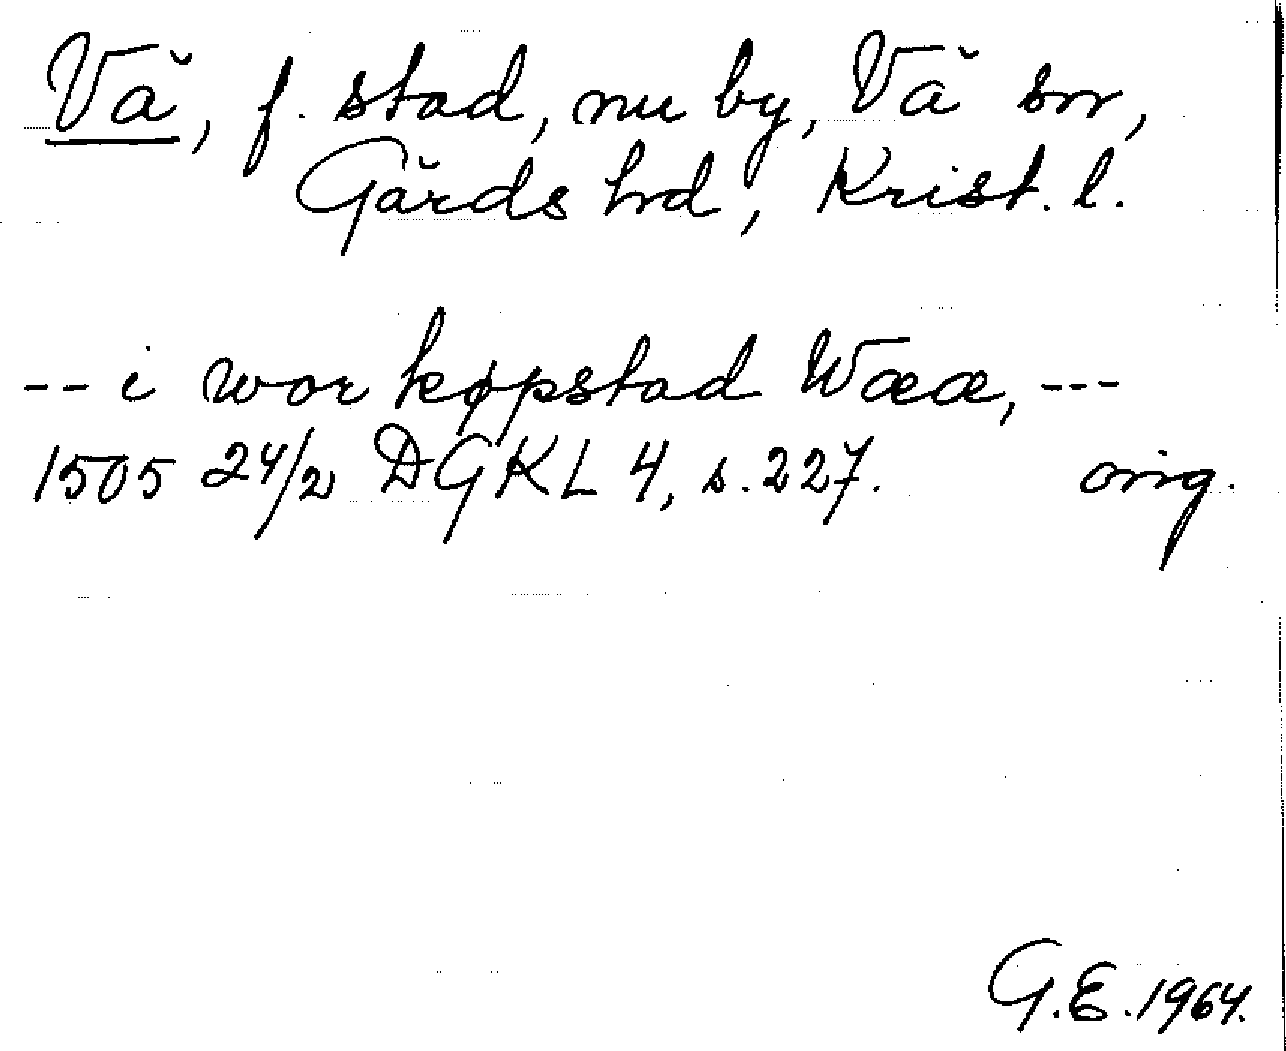 Vă, f. stad, nu by, Vă sn,
Gärds hd, Krist. l.
-- i wor køpstad Wææ, ---
1505 24/2 DGKL 4, s. 227. orig.
G.E. 1964.